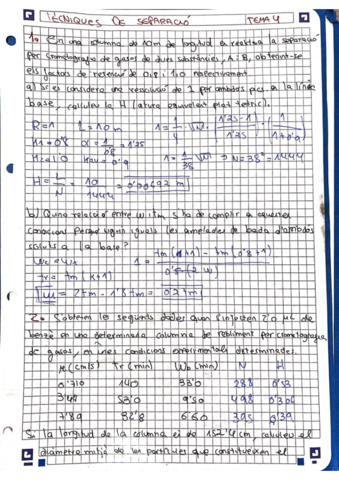 TÈCNIQUES DE SEPARACIÓ TEMA 4
1. En una columna de 10m de longitud es realitza la separació
per cromatografia de gasos de dues substàncies, A i B, obtenint-se
els factors de retenció de 0,8 i 1,0 respectivament.
a) Si es considera una resolució de 1 per ambdós pics en la línia
base, calculeu la H (altura equivalent plat teòric).
R=1 L=10m 1 = 1/4 · √N · (1'25-1 / 1'25) · (1 / 1+0'9)
K1=0'8 α = 1/0'8 = 1'25
K2=1'0 Kav=0'9 1 = 1/38 √N → N=38² = 1444
H = L/N = 10/1444 = 0'00692 m
b) Quina relació entre W i tm s'ha de complir a aquestes
condicions perquè siguin iguals les amplades de banda d'ambdós
soluts a la base?
1 = tm(1+1) - tm(0'8+1) / 0'5(2W)
tr = tm(k+1)
W = 2tm - 1'8tm = 0'2tm
2. S'obtenen les següents dades quan s'injecten 2'0 µL de
benzè en una determinada columna de rebliment per cromatografia
de gasos, en unes condicions experimentals determinades.
µ(cm/s) tr(min) Wb(min) N H
0'710 140 33'0 288 0'53
3'48 53'0 9'50 498 0'306
7'89 32'8 6'60 395 0'39
Si la longitud de la columna és de 152'4 cm, calculeu el
diàmetre mitjà de les partícules que constitueixen el